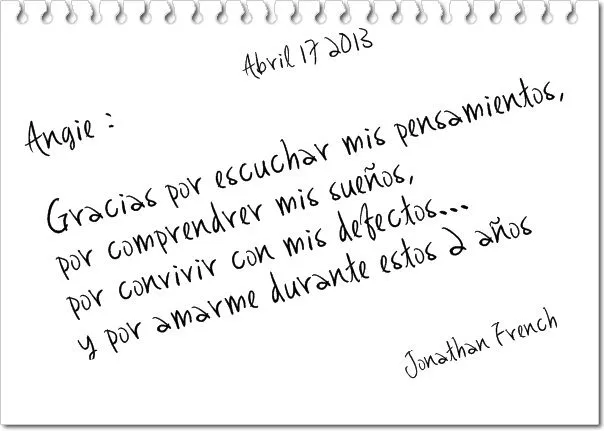 Abril 17 2013
Angie :
Gracias por escuchar mis pensamientos,
por comprendrer mis sueños,
por convivir con mis defectos...
y por amarme durante estos 2 años
Jonathan French